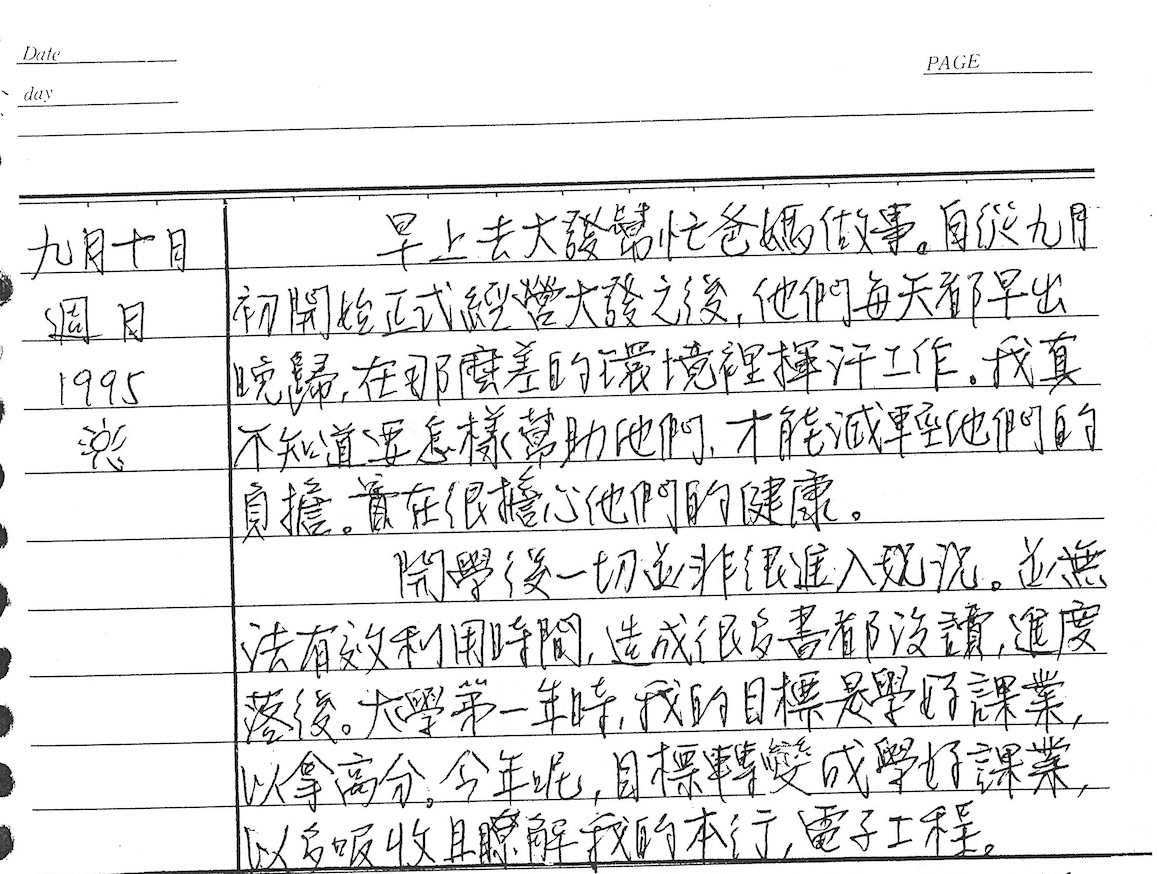 Date
PAGE
day
九月十日
週日
1995
早上去大發幫忙爸媽做事。自從九月
初開始正式經營大發之後,他們每天都早出
晚歸,在那麼差的環境裡揮汗工作。我真
不知道要怎樣幫助他們,才能減輕他們的
負擔。實在很擔心他們的健康。
開學後一切並非很進入現況。並無
法有效利用時間,造成很多書都沒讀,進度
落後。大學第一年時,我的目標是學好課業,
以拿高分。今年呢,目標轉變成學好課業,
以多吸收且瞭解我的本行,電子工程。